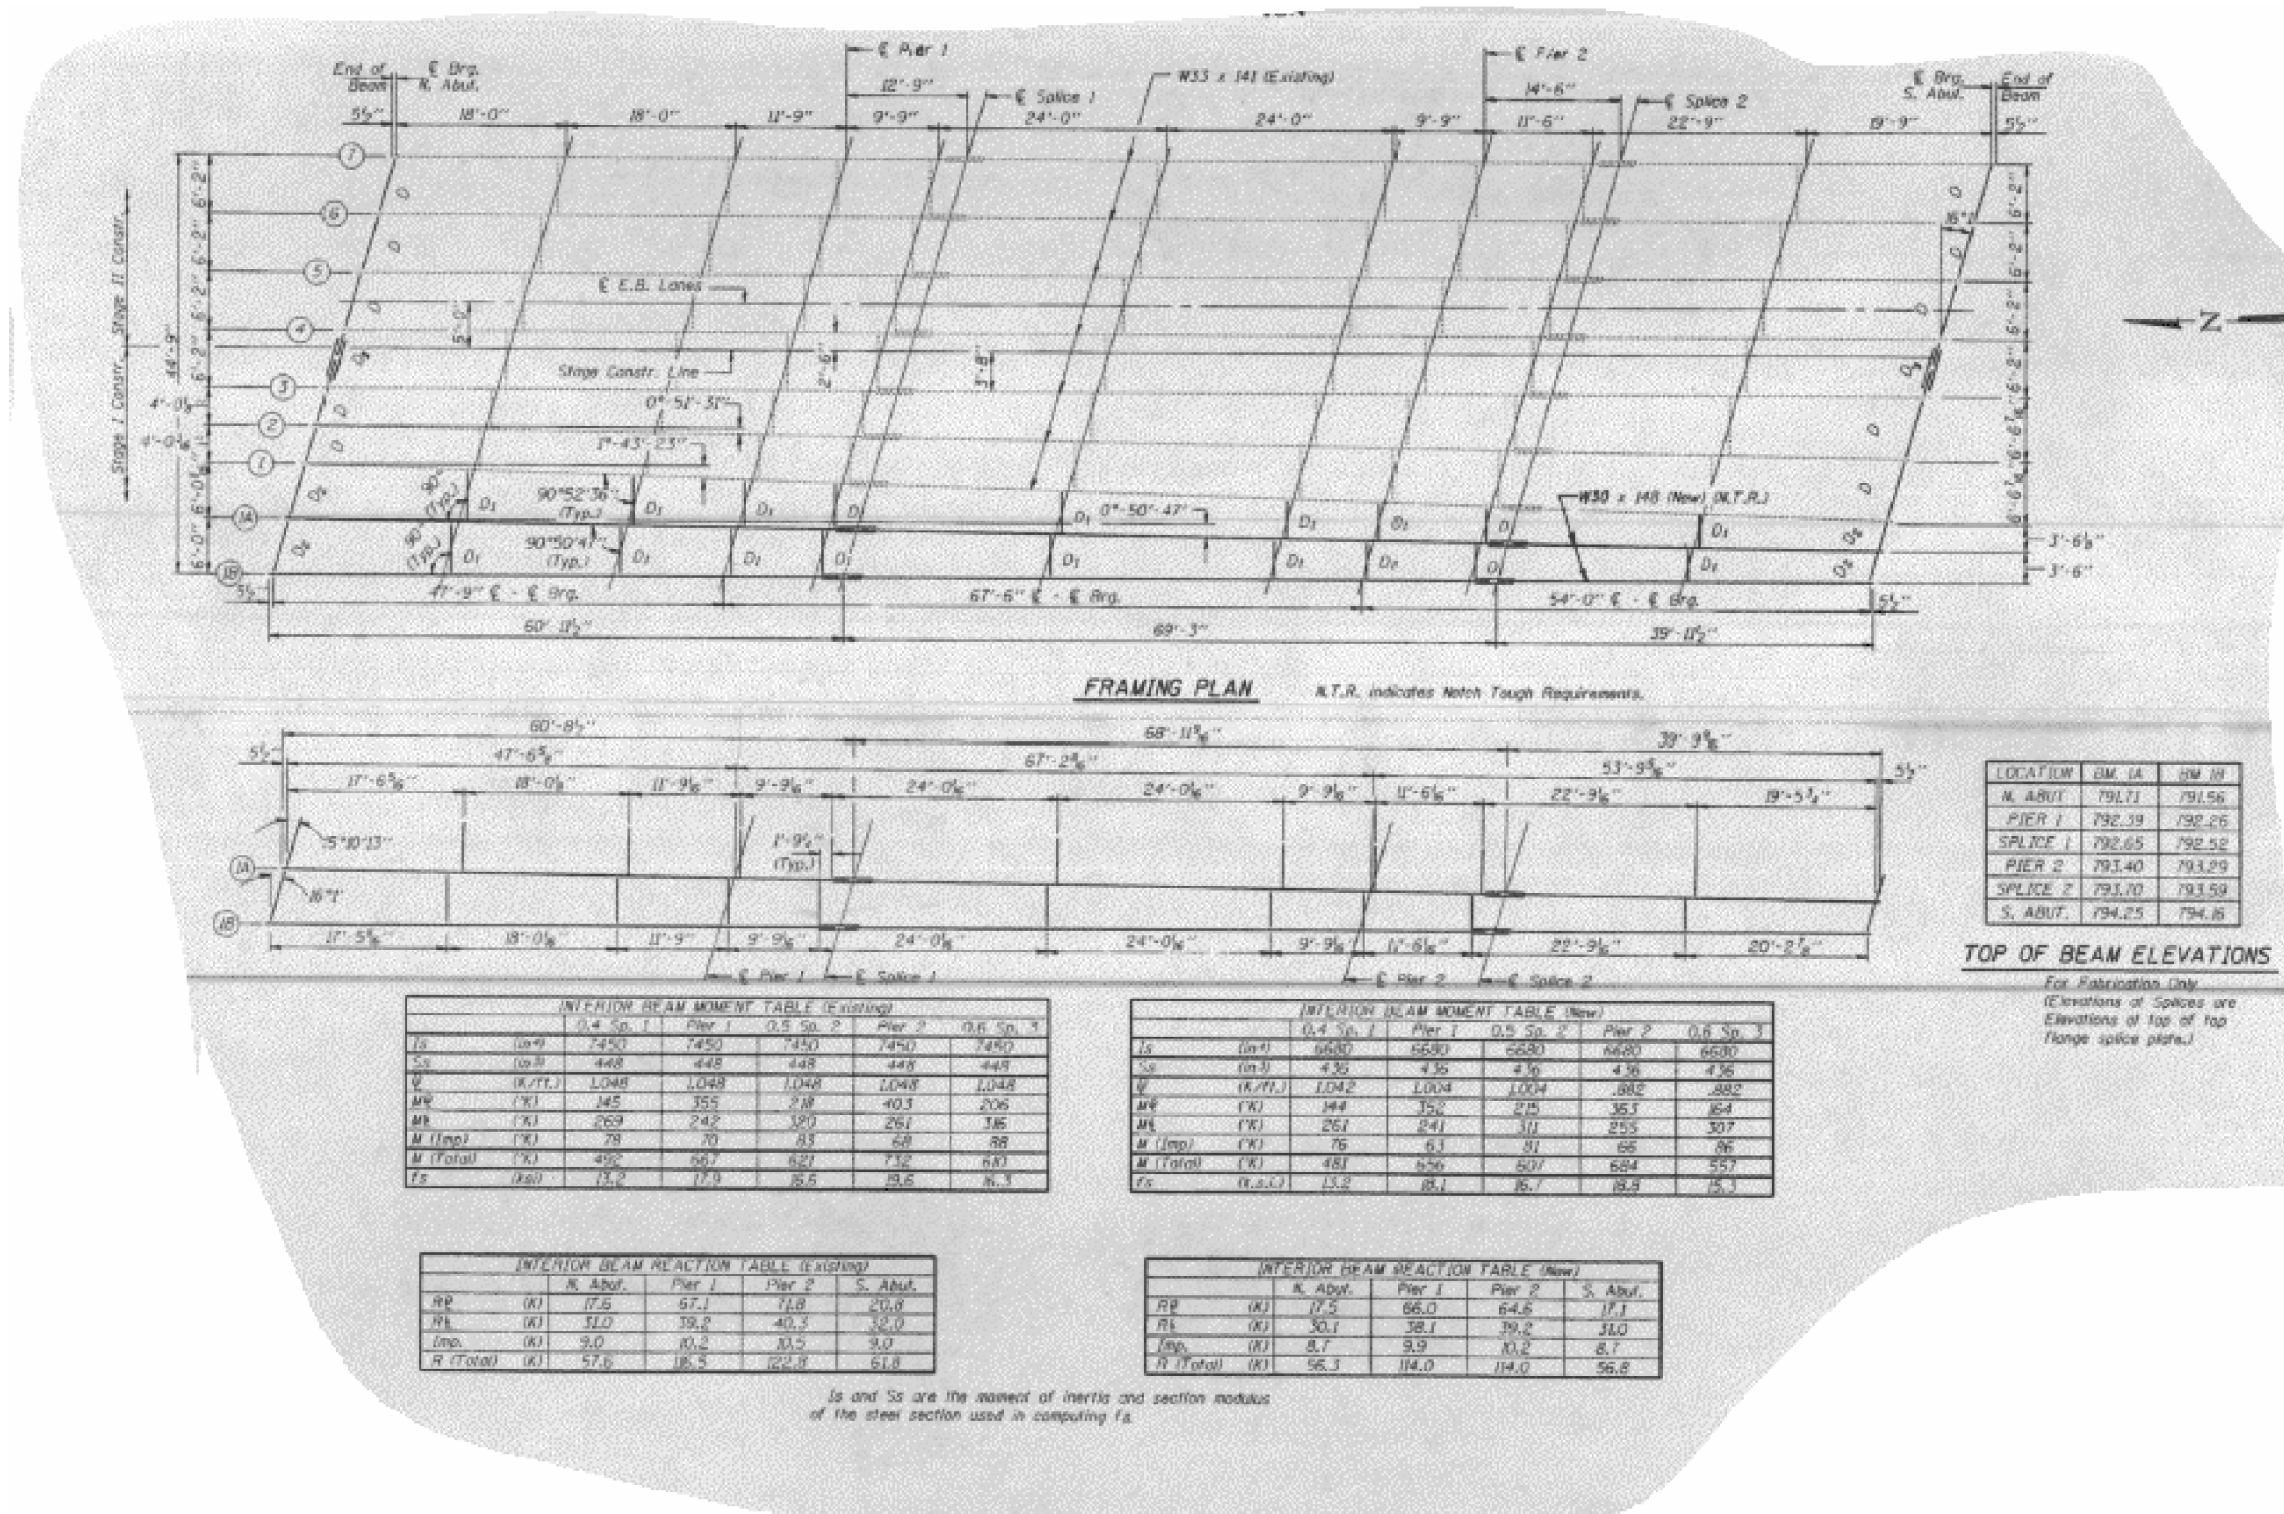 ℄ Pier 1
℄ Pier 2
End of Beam
℄ Brg. N. Abut.
12'-9"
℄ Splice 1
W33 x 141 (Existing)
14'-6"
℄ Splice 2
℄ Brg. S. Abut.
End of Beam
5½" 18'-0" 18'-0" 11'-9" 9'-9" 24'-0" 24'-0" 9'-9" 11'-6" 22'-9" 19'-9" 5½"
7
6
5
4
3
2
1
1A
1B
Stage II Constr.
Stage I Constr.
44'-9"
6'-2" 6'-2" 6'-2" 6'-2"
16°1'
℄ E.B. Lanes
5'-0"
Stage Constr. Line
2'-6"
3'-8"
0°-51'-31"
1°-43'-23"
N
90° (Typ.)
90°52'36" (Typ.)
90° (Typ.)
90°50'47" (Typ.)
0°-50'-47"
W30 x 148 (New) (N.T.R.)
6'-0"
3'-6⅛"
3'-6"
5½" 47'-9" ℄ - ℄ Brg. 67'-6" ℄ - ℄ Brg. 54'-0" ℄ - ℄ Brg. 5½"
60'-11½" 69'-3" 39'-11½"
FRAMING PLAN
N.T.R. indicates Notch Tough Requirements.
60'-8½"
5½" 47'-6⅝"
17'-6⁵⁄₁₆" 18'-0⅛" 11'-9¹⁄₁₆" 9'-9¹⁄₁₆" 24'-0¹⁄₁₆" 24'-0¹⁄₁₆" 9'-9¹⁄₁₆" 11'-6¹⁄₁₆" 22'-9¹⁄₁₆" 19'-5¾" 5½"
1'-9½" (Typ.)
16°1'
1A
1B
18'-0¹⁄₁₆" 11'-9" 9'-9¹⁄₁₆" 24'-0¹⁄₁₆" 24'-0¹⁄₁₆" 9'-9¹⁄₁₆" 11'-6¹⁄₁₆" 22'-9¹⁄₁₆" 20'-2⅞"
℄ Pier 1 ℄ Splice 1 ℄ Pier 2 ℄ Splice 2
LOCATION BM. 1A BM 1B
N. ABUT 791.71 791.56
PIER 1 792.39 792.26
SPLICE 1 792.65 792.52
PIER 2 793.40 793.29
SPLICE 2 793.70 793.59
S. ABUT. 794.25 794.16
TOP OF BEAM ELEVATIONS
For Fabrication Only
(Elevations of Splices are
Elevations of top of top
flange splice plate.)
INTERIOR BEAM MOMENT TABLE (Existing)
0.4 Sp. 1 Pier 1 0.5 Sp. 2 Pier 2 0.6 Sp. 3
Is (in⁴) 7450 7450 7450 7450 7450
Ss (in³) 448 448 448 448 448
℄ (K/ft.) 1.048 1.048 1.048 1.048 1.048
M℄ ('K) 145 355 218 403 206
M℄ ('K) 269 242 320 261 316
M (Imp) ('K) 78 70 83 68 88
M (Total) ('K) 492 667 621 732 610
fs (ksi) 13.2 17.9 16.6 19.6 16.3
INTERIOR BEAM MOMENT TABLE (New)
0.4 Sp. 1 Pier 1 0.5 Sp. 2 Pier 2 0.6 Sp. 3
Is (in⁴) 6680 6680 6680 6680 6680
Ss (in³) 436 436 436 436 436
℄ (K/ft.) 1.042 1.004 1.004 .882 .882
M℄ ('K) 144 352 215 363 164
M℄ ('K) 261 241 311 255 307
M (Imp) ('K) 76 63 81 66 86
M (Total) ('K) 481 656 607 684 557
fs (k.s.i.) 13.2 18.1 16.7 18.8 15.3
INTERIOR BEAM REACTION TABLE (Existing)
N. Abut. Pier 1 Pier 2 S. Abut.
R℄ (K) 17.6 67.1 71.8 20.8
R℄ (K) 31.0 39.2 40.3 32.0
Imp. (K) 9.0 10.2 10.5 9.0
R (Total) (K) 57.6 116.5 122.8 61.8
INTERIOR BEAM REACTION TABLE (New)
N. Abut. Pier 1 Pier 2 S. Abut.
R℄ (K) 17.5 66.0 64.6 17.1
R℄ (K) 30.1 38.1 39.2 31.0
Imp. (K) 8.7 9.9 10.2 8.7
R (Total) (K) 56.3 114.0 114.0 56.8
Is and Ss are the moment of inertia and section modulus
of the steel section used in computing fs.